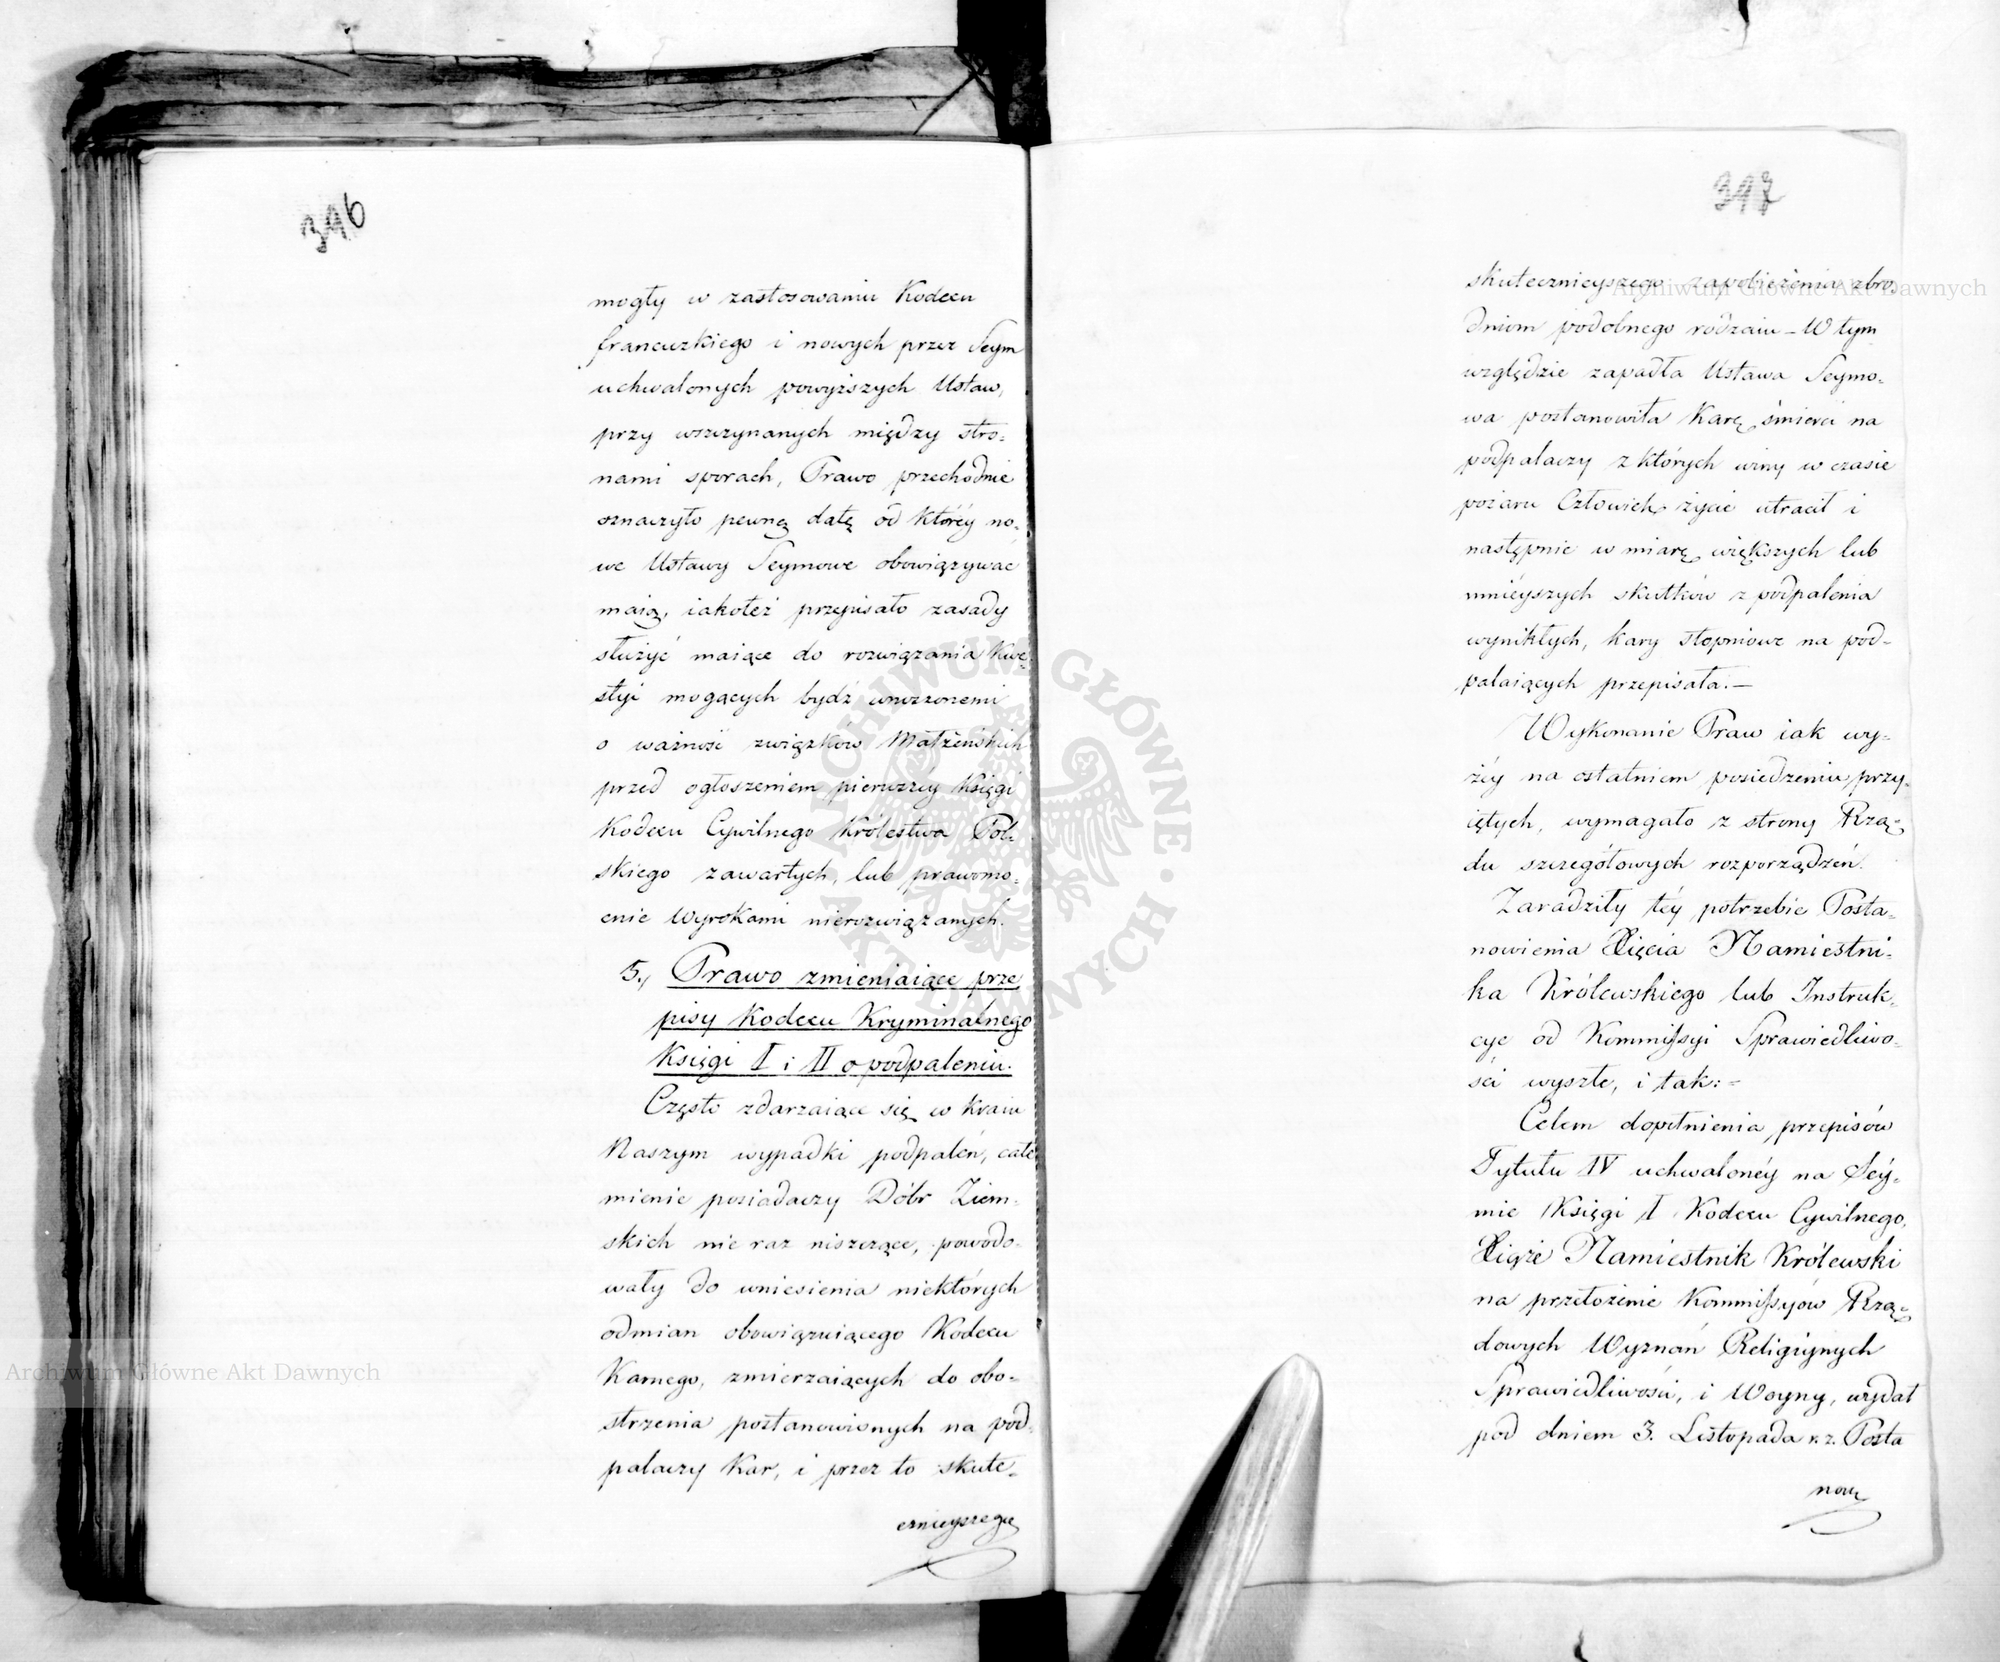 346
mogły w zastosowaniu Kodexu
francuzkiego i nowych przez Seym
uchwalonych powyższych Ustaw,
przy wszczynanych między stro-
nami sporach, Prawo przechodnie
oznaczyło pewną datę od któréy no-
we Ustawy Seymowe obowiązywać
maią, iakoteż przepisało zasady
służyć maiące do rozwiązania Kwe-
styi mogących bydź wnoszonemi
o ważność związków Małżeńskich
przed ogłoszeniem pierwszéy Księgi
Kodexu Cywilnego Królestwa Pol-
skiego zawartych, lub prawomo-
cnie Wyrokami nierozwiązanych.
5., Prawo zmieniaiące prze
pisy Kodexu Kryminalnego
Księgi I i II o podpaleniu.
Często zdarzaiące się w Kraiu
Naszym wypadki podpaleń, całe
mienie posiadaczy Dóbr Ziem-
skich nie raz niszczące, powodo-
wały do wniesienia niektórych
odmian obowiązuiącego Kodexu
Karnego, zmierzaiących do obo-
strzenia postanowionych na pod-
palaczy Kar, i przez to skute-
cznieyszego
347
skutecznieyszego zapobieżenia zbro-
dniom podobnego rodzaiu – W tym
względzie zapadła Ustawa Seymo-
wa postanowiła Karę śmierci na
podpalaczy z których winy w czasie
pożaru Człowiek życie utracił i
następnie w miarę większych lub
mniéyszych skutków z podpalenia
wynikłych, kary stopniowe na pod-
palaiących przepisała. –
Wykonanie Praw iak wy-
żéy na ostatniem posiedzeniu przy-
iętych, wymagało z strony Rzą-
du szczegółowych rozporządzeń.
Zaradziły téy potrzebie Posta-
nowienia Xięcia Namiestni-
ka Królewskiego lub Instruk-
cye od Kommissyi Sprawiedliwo-
ści wyszłe, i tak: =
Celem dopełnienia przepisów
Tytułu IV uchwalonéy na Séy-
mie Księgi I Kodexu Cywilnego,
Xiąże Namiestnik Królewski
na przełożenie Kommissyów Rzą-
dowych Wyznań Religiynych
Sprawiedliwości, i Woyny, wydał
pod dniem 3. Listopada r. z. Posta
now
Archiwum Główne Akt Dawnych
Archiwum Główne Akt Dawnych
ARCHIWUM GŁÓWNE · AKT DAWNYCH ·